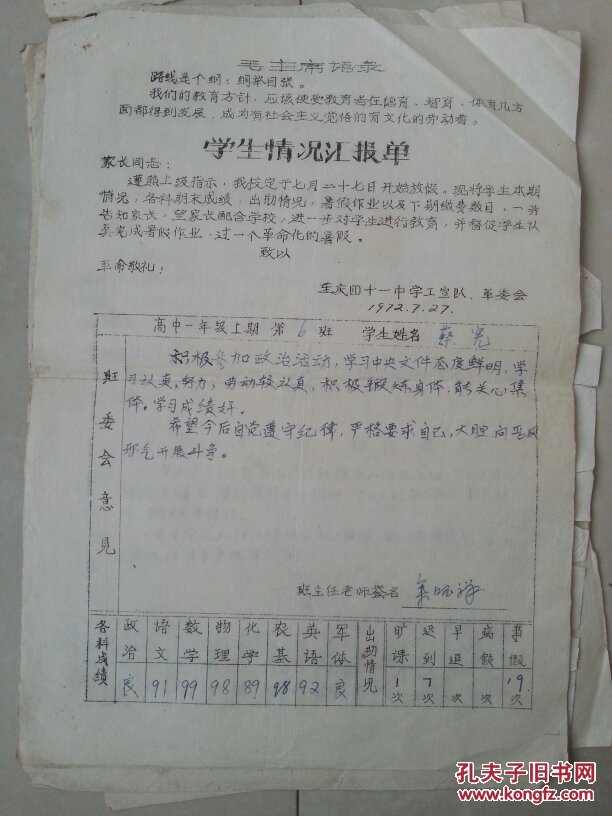 毛主席语录
路线是个纲，纲举目张。
我们的教育方针，应该使受教育者在德育、智育、体育几方
面都得到发展，成为有社会主义觉悟的有文化的劳动者。
学生情况汇报单
家长同志：
遵照上级指示，我校定于七月二十七日开始放假。现将学生本期
情况，各科期末成绩，出勤情况，暑假作业以及下期缴费数目，一并
告知家长，望家长配合学校，进一步对学生进行教育，并督促学生认
真完成暑假作业，过一个革命化的暑假。
致以
革命敬礼！
重庆四十一中学工宣队、革委会
1972.7.27.
高中一年级上期 第6班 学生姓名 蔡光
班委会意见
积极参加政治活动，学习中央文件态度鲜明，学
习认真，努力，劳动较认真，积极锻炼身体，能关心集
体。学习成绩好。
希望今后自觉遵守纪律，严格要求自己，大胆向歪风
邪气开展斗争。
班主任老师签名
各科成绩 政治 语文 数学 物理 化学 农基 英语 军体 出勤情况 旷课 迟到 早退 病假 事假
良 91 99 98 89 98 92 良 1次 7次 次 次 19次
孔夫子旧书网
KONGFZ.COM